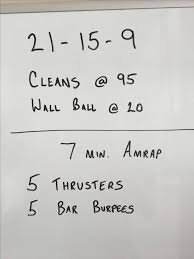 21-15-9
CLEANS @ 95
WALL BALL @ 20
7 MIN. AMRAP
5 THRUSTERS
5 BAR BURPEES